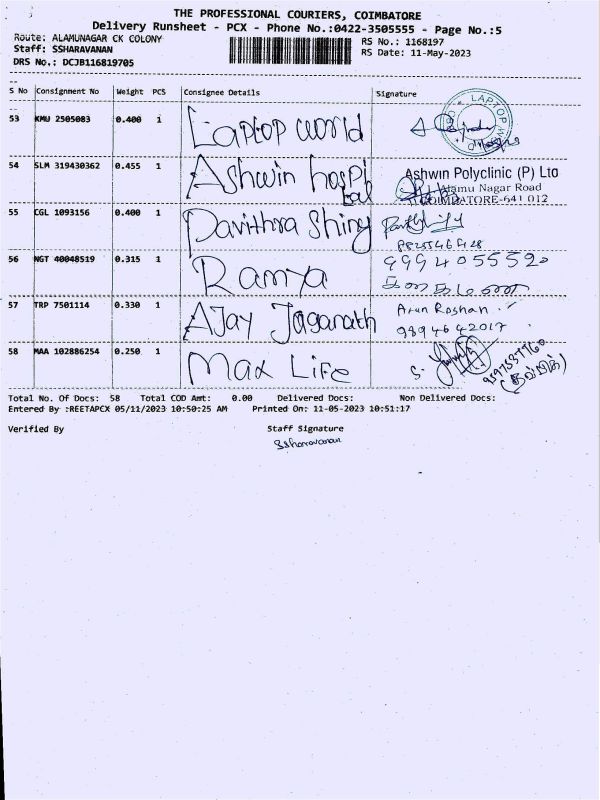 THE PROFESSIONAL COURIERS, COIMBATORE
Delivery Runsheet - PCX - Phone No.:0422-3505555 - Page No.:5
Route: ALAMUNAGAR CK COLONY
RS No.: 1168197
Staff: SSHARAVANAN
RS Date: 11-May-2023
DRS No.: DCJB116819705
S No Consignment No Weight PCS Consignee Details Signature
53 KMU 2505083 0.400 1 Laptop world
LAPTOP
54 SLM 319430362 0.455 1 Ashwin hospital
Ashwin Polyclinic (P) Ltd
Alamu Nagar Road
COIMBATORE-641 012
55 CGL 1093156 0.400 1 Pavithra Shiny
56 NGT 40048519 0.315 1 Ramya
9994055520
57 TRP 7501114 0.330 1 AJay Jaganath
Arun Roshan
9894642017
58 MAA 102886254 0.250 1 Max Life
S.
Total No. Of Docs: 58 Total COD Amt: 0.00 Delivered Docs: Non Delivered Docs:
Entered By :REETAPCX 05/11/2023 10:50:25 AM Printed On: 11-05-2023 10:51:17
Verified By Staff Signature
SSharavanan